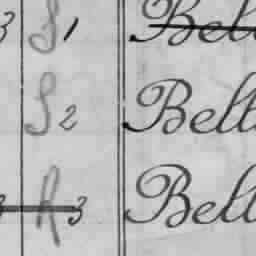 3 S 1 Bell
S 2 Bell
3 R 3 Bell